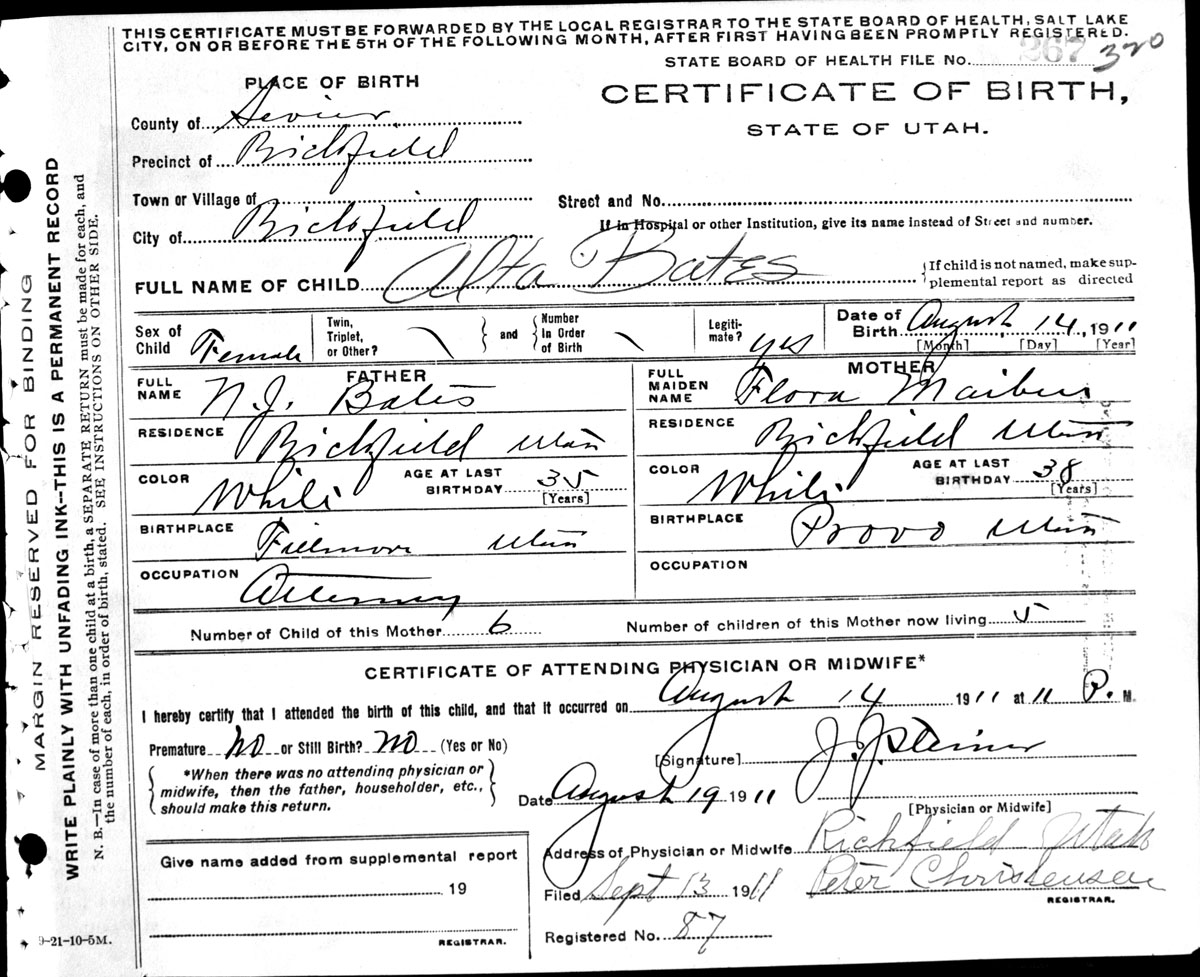 THIS CERTIFICATE MUST BE FORWARDED BY THE LOCAL REGISTRAR TO THE STATE BOARD OF HEALTH, SALT LAKE
CITY, ON OR BEFORE THE 5TH OF THE FOLLOWING MONTH, AFTER FIRST HAVING BEEN PROMPTLY REGISTERED.
STATE BOARD OF HEALTH FILE No. 267 320
PLACE OF BIRTH
CERTIFICATE OF BIRTH,
STATE OF UTAH.
County of Sevier
Precinct of Richfield
Town or Village of
Street and No.
City of Richfield
If in Hospital or other Institution, give its name instead of Street and number.
FULL NAME OF CHILD Alta Bates
{If child is not named, make sup-
plemental report as directed
Sex of Child Female
Twin, Triplet, or Other?
and
Number In Order of Birth
Legiti-mate? yes
Date of Birth August 14, 1911
[Month] [Day] [Year]
FATHER
FULL NAME N. J. Bates
RESIDENCE Richfield Utah
COLOR White
AGE AT LAST BIRTHDAY 35
[Years]
BIRTHPLACE Fillmore Utah
OCCUPATION Attorney
MOTHER
FULL MAIDEN NAME Flora
RESIDENCE Richfield Utah
COLOR White
AGE AT LAST BIRTHDAY 38
[Years]
BIRTHPLACE Provo Utah
OCCUPATION
Number of Child of this Mother 6
Number of children of this Mother now living 5
CERTIFICATE OF ATTENDING PHYSICIAN OR MIDWIFE*
I hereby certify that I attended the birth of this child, and that it occurred on August 14 1911 at 11 P. M.
Premature No or Still Birth? No (Yes or No)
[Signature] J. J. Steiner
*When there was no attending physician or
midwife, then the father, householder, etc.,
should make this return.
Date August 19 1911
[Physician or Midwife]
Address of Physician or Midwife Richfield Utah
Give name added from supplemental report
19
REGISTRAR.
Filed Sept 13 1911 Peter Christensen
REGISTRAR.
Registered No. 87
9-21-10-5M.
MARGIN RESERVED FOR BINDING
WRITE PLAINLY WITH UNFADING INK--THIS IS A PERMANENT RECORD
N. B.—In case of more than one child at a birth, a SEPARATE RETURN must be made for each, and
the number of each, in order of birth, stated. SEE INSTRUCTIONS ON OTHER SIDE.